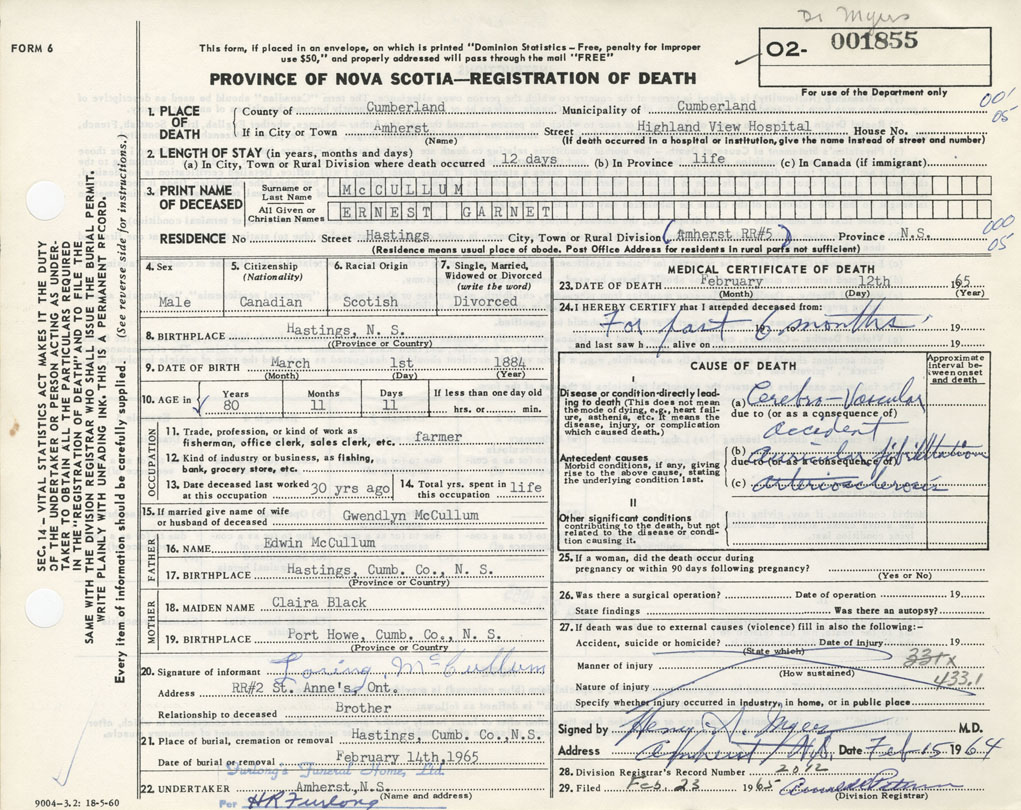 Dr Myers
FORM 6
This form, if placed in an envelope, on which is printed "Dominion Statistics – Free, penalty for improper
use $50," and properly addressed will pass through the mail "FREE"
O2- 001855
PROVINCE OF NOVA SCOTIA—REGISTRATION OF DEATH
For use of the Department only
001
05
1. PLACE OF DEATH
County of Cumberland Municipality of Cumberland
If in City or Town Amherst Street Highland View Hospital House No.
(Name) (If death occurred in a hospital or institution, give the name instead of street and number)
2. LENGTH OF STAY (in years, months and days)
(a) In City, Town or Rural Division where death occurred 12 days (b) In Province life (c) In Canada (if immigrant)
3. PRINT NAME OF DECEASED
Surname or Last Name McCULLUM
All Given or Christian Names ERNEST GARNET
000
05
RESIDENCE No Street Hastings City, Town or Rural Division (Amherst RR#5) Province N.S.
(Residence means usual place of abode. Post Office Address for residents in rural parts not sufficient)
4. Sex
Male
5. Citizenship
(Nationality)
Canadian
6. Racial Origin
Scotish
7. Single, Married,
Widowed or Divorced
(write the word)
Divorced
8. BIRTHPLACE Hastings, N. S.
(Province or Country)
9. DATE OF BIRTH March 1st 1884
(Month) (Day) (Year)
10. AGE in Years 80 Months 11 Days 11 If less than one day old
hrs. or min.
OCCUPATION
11. Trade, profession, or kind of work as
fisherman, office clerk, sales clerk, etc. farmer
12. Kind of industry or business, as fishing,
bank, grocery store, etc.
13. Date deceased last worked
at this occupation 30 yrs ago
14. Total yrs. spent in
this occupation life
15. If married give name of wife
or husband of deceased Gwendlyn McCullum
FATHER
16. NAME Edwin McCullum
17. BIRTHPLACE Hastings, Cumb. Co., N. S.
(Province or Country)
MOTHER
18. MAIDEN NAME Claira Black
19. BIRTHPLACE Port Howe, Cumb. Co., N. S.
(Province or Country)
20. Signature of informant McCullum
Address RR#2 St. Anne's, Ont.
Relationship to deceased Brother
21. Place of burial, cremation or removal Hastings, Cumb. Co.,N.S.
Date of burial or removal February 14th,1965
Furlong's Funeral Home, Ltd.
22. UNDERTAKER Amherst, N.S.
(Name and address)
Per HR Furlong
9004–3.2: 18-5-60
MEDICAL CERTIFICATE OF DEATH
23. DATE OF DEATH February 12th 1965
(Month) (Day) (Year)
24. I HEREBY CERTIFY that I attended deceased from:
For past months 19
and last saw h alive on 19
CAUSE OF DEATH
Approximate
interval between onset
and death
I
Disease or condition directly leading to death (This does not mean
the mode of dying, e.g., heart failure, asthenia, etc. It means the
disease, injury, or complication
which caused death.)
(a) Cerebro-Vascular
due to (or as a consequence of)
accident
Antecedent causes
Morbid conditions, if any, giving
rise to the above cause, stating
the underlying condition last.
(b) Auricular fibrillation
due to (or as a consequence of)
(c) Arteriosclerosis
II
Other significant conditions
contributing to the death, but not
related to the disease or condition causing it.
25. If a woman, did the death occur during
pregnancy or within 90 days following pregnancy?
(Yes or No)
26. Was there a surgical operation? Date of operation 19
State findings Was there an autopsy?
27. If death was due to external causes (violence) fill in also the following:–
Accident, suicide or homicide? Date of injury 19
(State which)
331x
Manner of injury
(How sustained)
433.1
Nature of injury
Specify whether injury occurred in industry, in home, or in public place
Signed by Henry S. Myers M.D.
Address Amherst N.S. Date Feb 15 1964
28. Division Registrar's Record Number 2012
29. Filed Feb. 23 1965
(Division Registrar)
SEC. 14 – VITAL STATISTICS ACT MAKES IT THE DUTY
OF THE UNDERTAKER OR PERSON ACTING AS UNDERTAKER TO OBTAIN ALL THE PARTICULARS REQUIRED
IN THE "REGISTRATION OF DEATH" AND TO FILE THE
SAME WITH THE DIVISION REGISTRAR WHO SHALL ISSUE THE BURIAL PERMIT.
WRITE PLAINLY WITH UNFADING INK. THIS IS A PERMANENT RECORD.
Every item of information should be carefully supplied. (See reverse side for instructions.)